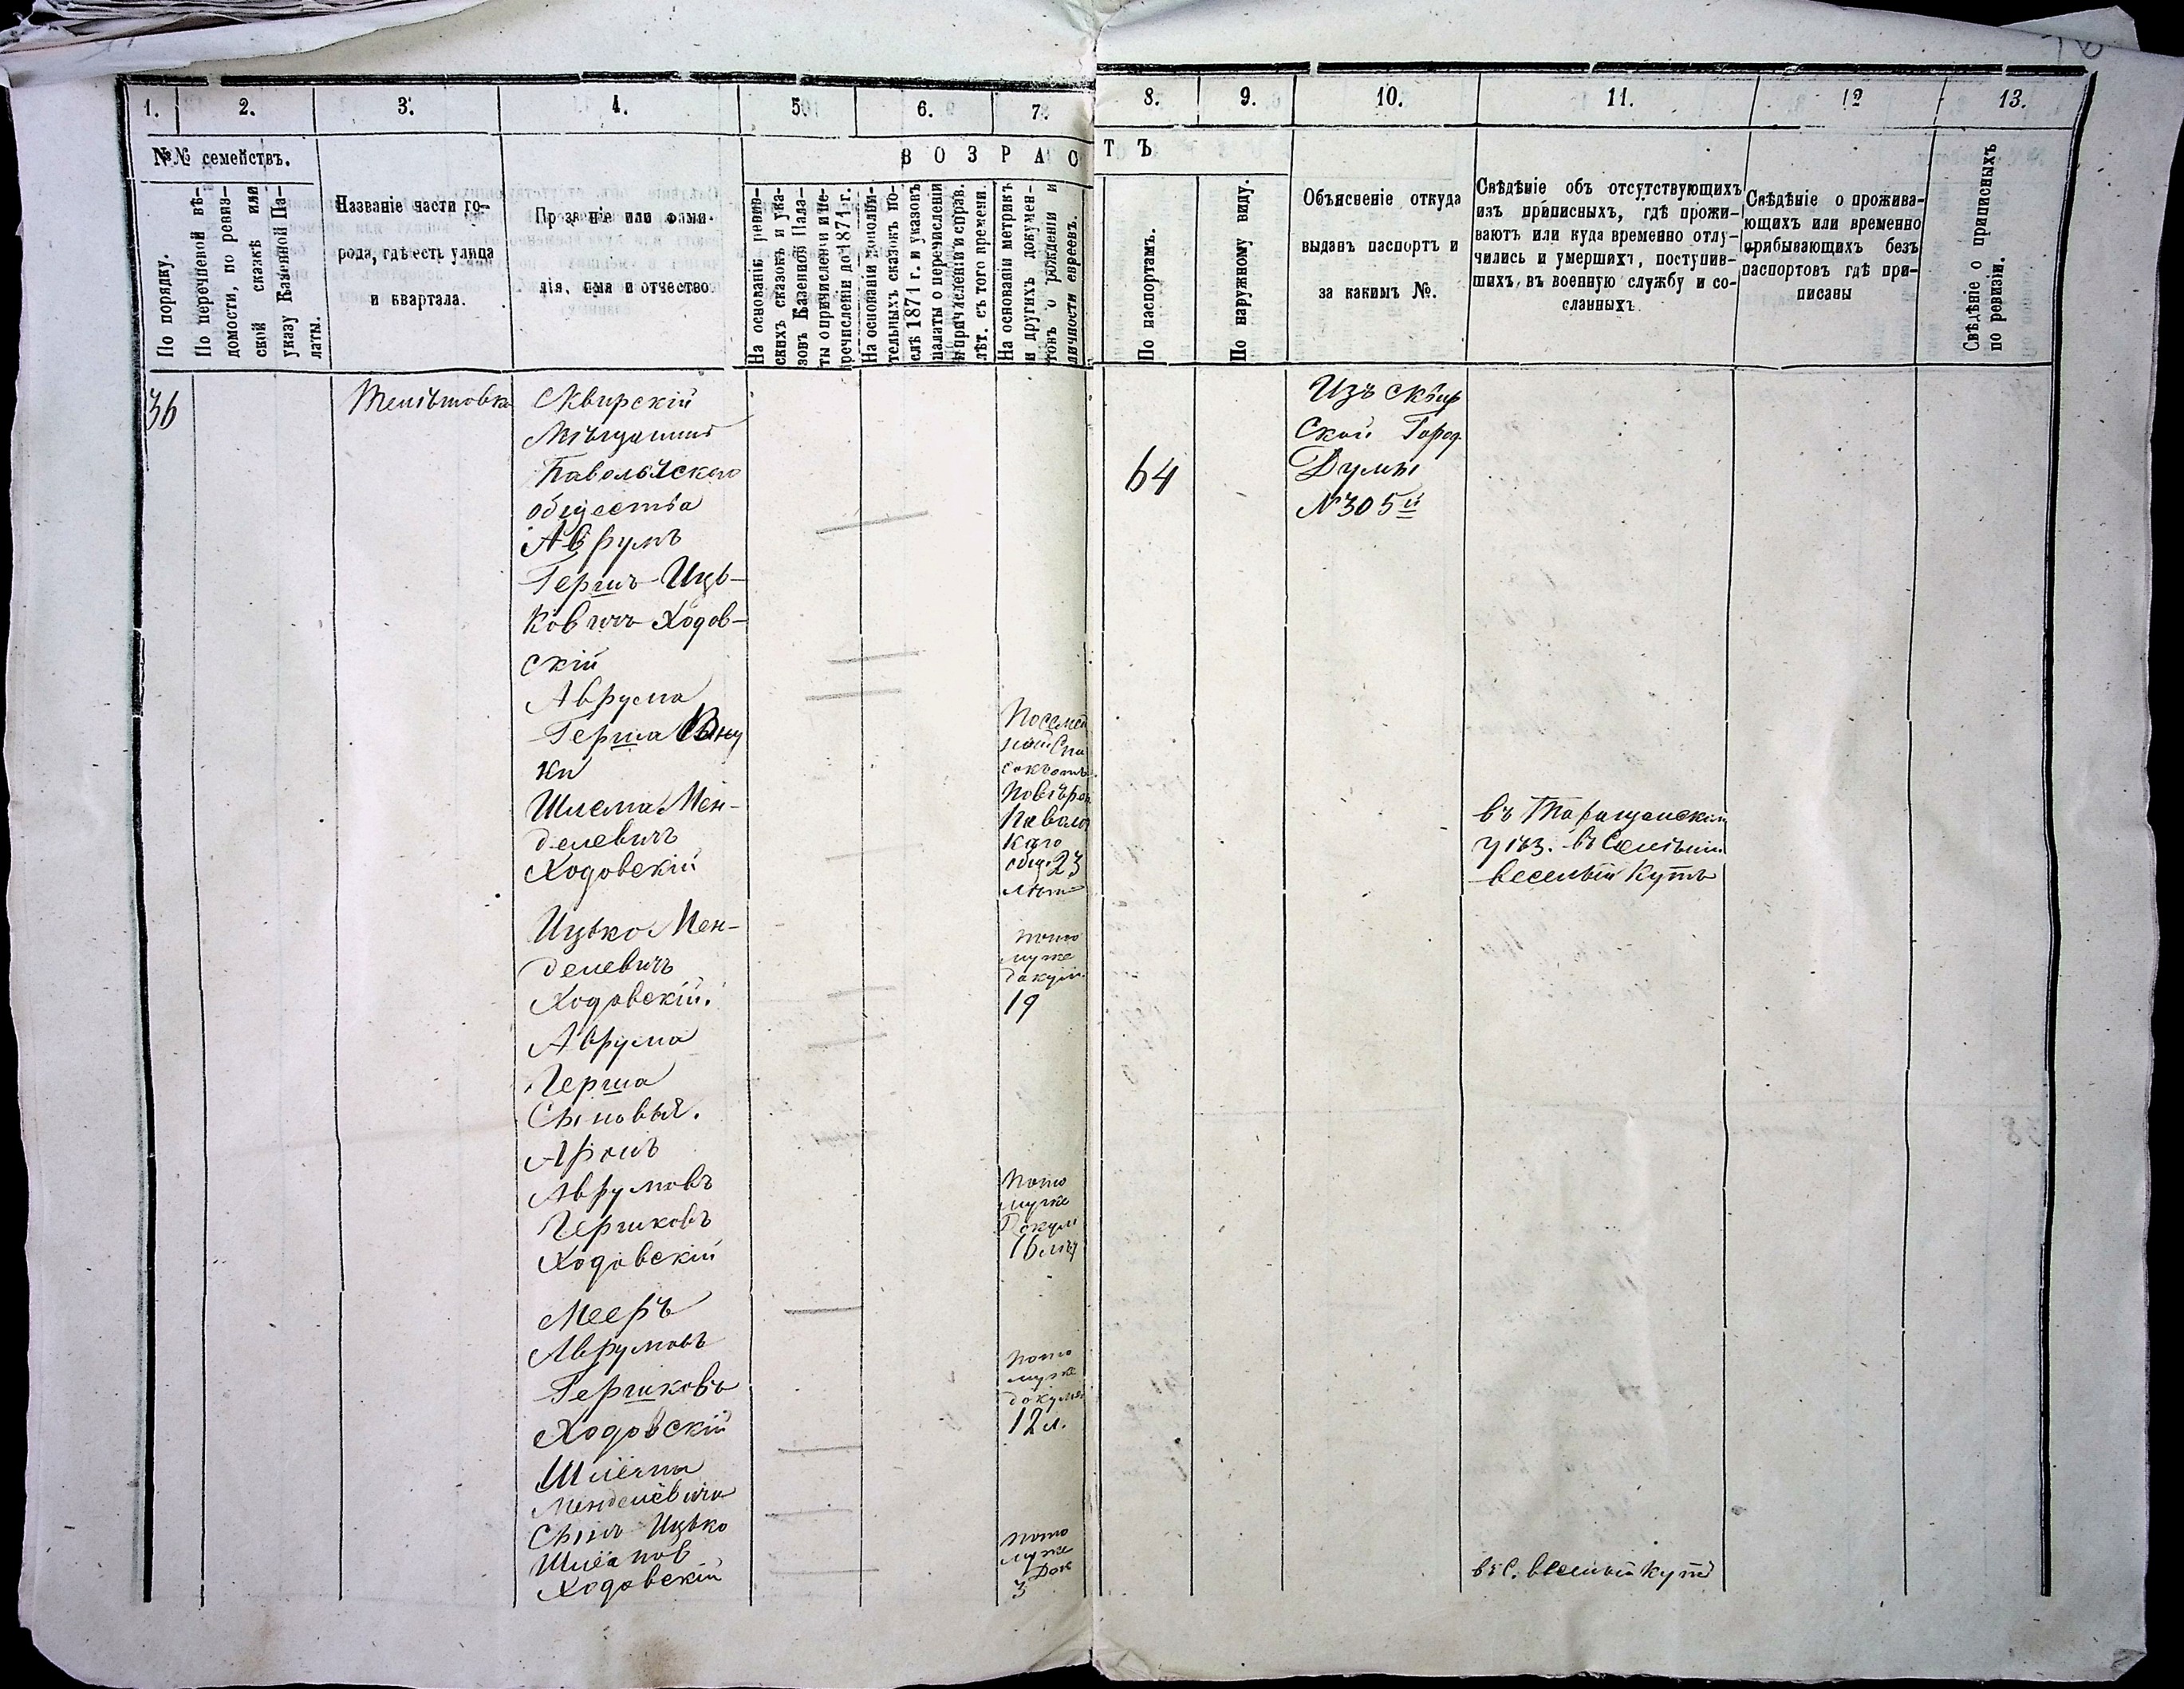 1. 2. 3. 4. 5. 6. 7. 8. 9. 10. 11. 12 13.
№№ семействъ.
По порядку.
По перечневой вѣ-
домости, по ревиз-
ской сказкѣ или
указу Казенной Па-
латы.
Названіе части го-
рода, гдѣ есть улица
и квартала.
Прозваніе или фами-
лія, имя и отчество
ВОЗРАСТЪ
На основаніи ревиз-
скихъ сказокъ и ука-
зовъ Казенной Пала-
ты о причисленіи и пе-
речисленіи до 1871 г.
На основаніи дополни-
тельныхъ сказокъ по-
слѣ 1871 г. и указовъ
палаты о перечисленіи
и причисленіи и справ.
лѣт. съ того времени.
На основаніи метрикъ
и другихъ докумен-
товъ о рожденіи и
личности евреевъ.
По паспортамъ.
По наружному виду.
Объясненіе откуда
выданъ паспортъ и
за какимъ №.
Свѣдѣніе объ отсутствующихъ
изъ приписныхъ, гдѣ прожи-
ваютъ или куда временно отлу-
чились и умершихъ, поступив-
шихъ въ военную службу и со-
сланныхъ.
Свѣдѣніе о прожива-
ющихъ или временно
прибывающихъ безъ
паспортовъ гдѣ при-
писаны
Свѣдѣніе о приписныхъ
по ревизіи.
36
Сквирскій
Мѣщанинъ
Паволочскаго
общества
Аврумъ
Гершъ Иць-
ковичъ Ходов-
скій
64
Изъ Сквир
ской Город.
Думы
№ 305й
Аврума
Герша Вну
ки
Шлема Мен-
делевичъ
Ходовскій
23
въ Таращанском
уѣз. въ Селѣніи
веселый Кутъ
Ицько Мен-
делевичъ
Ходовскій.
потo
муже
докум.
19
Аврума
Герша
Сыновья.
Аронъ
Аврумовъ
Гершковъ
Ходовскій
пото
муже
Докум
16 лѣт
Мееръ
Аврумовъ
Гершковъ
Ходовскій
пото
муже
докумен
12 л.
Шлемы
Менделевича
Сынъ Ицько
Шлемов
Ходовскій
пото
муже
Док
3
въ С. веселый Кутъ